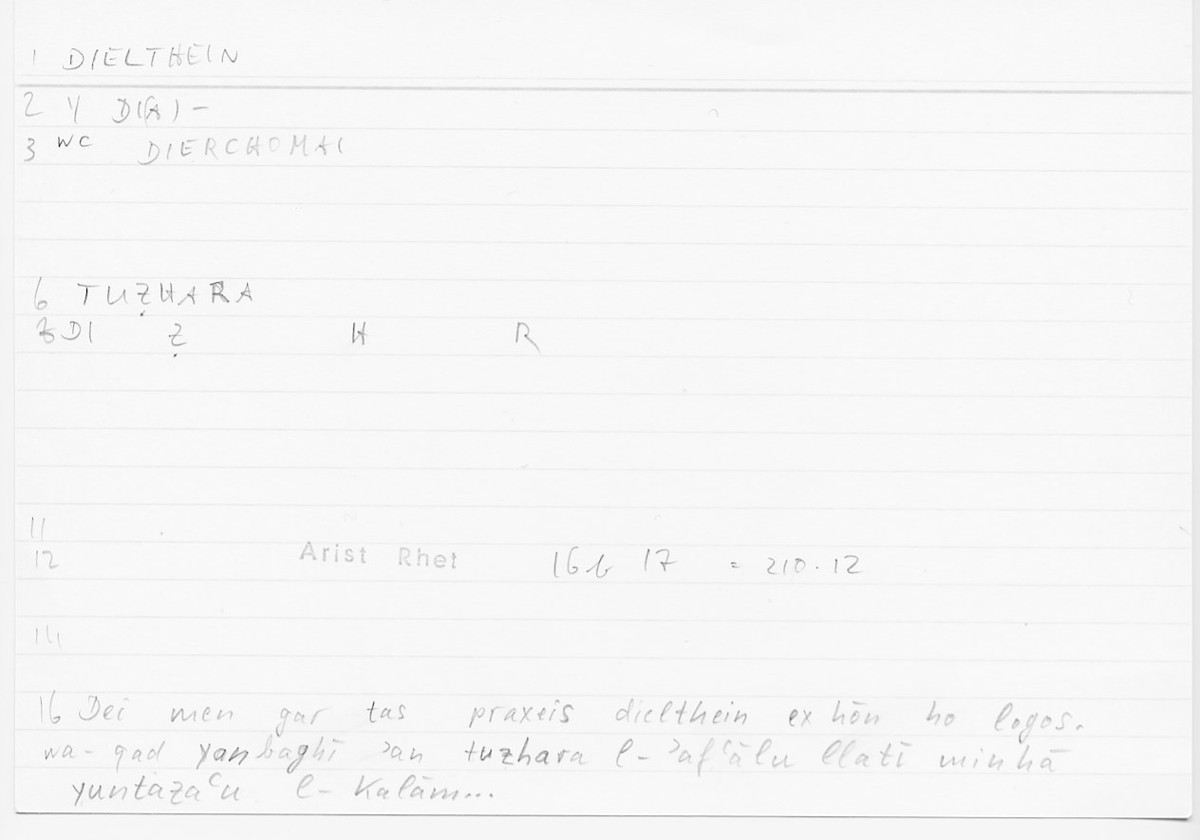 1 DIELTHEIN
2 y DI(A)-
3 WC DIERCHOMAI
6 TUẒHARA
DI Ẓ H R
11
12 Arist Rhet 16b 17 = 210.12
14
16 Dei men gar tas praxeis dielthein ex hōn ho logos.
wa-qad yanbaghī ʾan tuzhara l-ʾafʿālu llatī minhā
yuntazaʿu l-Kalām...